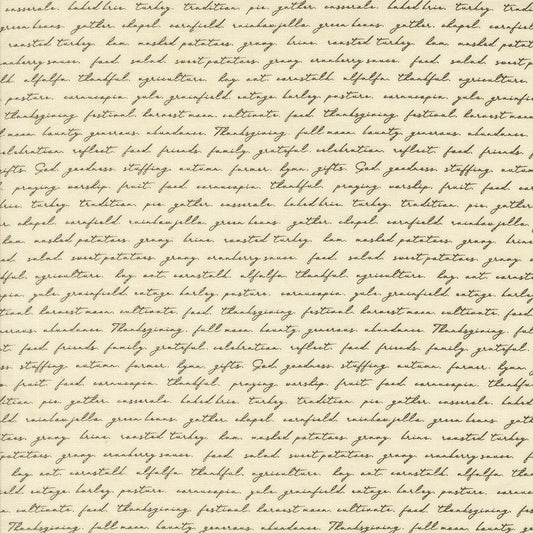 casserole. baked brie. turkey. tradition. pie. gather. casserole. baked brie. turkey. tradi
green beans. gather. chapel. cornfield. rainbow jello. green beans. gather. chapel. cornfiel
roasted turkey. ham. mashed potatoes. gravy. brine. roasted turkey. ham. mashed potat
cranberry sauce. food. salad. sweet potatoes. gravy. cranberry sauce. food. salad. sweet p
alfalfa. thankful. agriculture. hay. oat. cornstalk. alfalfa. thankful. agriculture.
pasture. cornucopia. yule. grainfield. cottage. barley. pasture. cornucopia. yule. grainfie
thanksgiving. festival. harvest moon. cultivate. food. thanksgiving. festival. harvest moon
moon. bounty. generous. abundance. Thanksgiving. full moon. bounty. generous. abundance.
celebration. reflect. food. friends. family. grateful. celebration. reflect. food. friends.
gifts. God. goodness. stuffing. autumn. farmer. hymn. gifts. God. goodness. stuffing. autum
praying. worship. fruit. food. cornucopia. thankful. praying. worship. fruit. food. cor
brie. turkey. tradition. pie. gather. casserole. baked brie. turkey. tradition. pie. gather
chapel. cornfield. rainbow jello. green beans. gather. chapel. cornfield. rainbow jello.
ham. mashed potatoes. gravy. brine. roasted turkey. ham. mashed potatoes. gravy. brine
salad. sweet potatoes. gravy. cranberry sauce. food. salad. sweet potatoes. gravy.
agriculture. hay. oat. cornstalk. alfalfa. thankful. agriculture. hay. oat. cornst
yule. grainfield. cottage. barley. pasture. cornucopia. yule. grainfield. cottage. barle
festival. harvest moon. cultivate. food. thanksgiving. festival. harvest moon. cultivate. food
abundance. Thanksgiving. full moon. bounty. generous. abundance. Thanksgiving. ful
food. friends. family. grateful. celebration. reflect. food. friends. family. grateful.
stuffing. autumn. farmer. hymn. gifts. God. goodness. stuffing. autumn. farmer. hymn.
fruit. food. cornucopia. thankful. praying. worship. fruit. food. cornucopia. thankfu
pie. gather. casserole. baked brie. turkey. tradition. pie. gather. casserole. baked
rainbow jello. green beans. gather. chapel. cornfield. rainbow jello. green beans.
gravy. brine. roasted turkey. ham. mashed potatoes. gravy. brine. roasted
potatoes. gravy. cranberry sauce. food. salad. sweet potatoes. gravy. cranberry sauce.
hay. oat. cornstalk. alfalfa. thankful. agriculture. hay. oat. cornstalk. alfalfa. th
cottage. barley. pasture. cornucopia. yule. grainfield. cottage. barley. pasture. cornuco
cultivate. food. thanksgiving. festival. harvest moon. cultivate. food. thanksgiving. fes
Thanksgiving. full moon. bounty. generous. abundance. Thanksgiving. full moon. bounty. ge